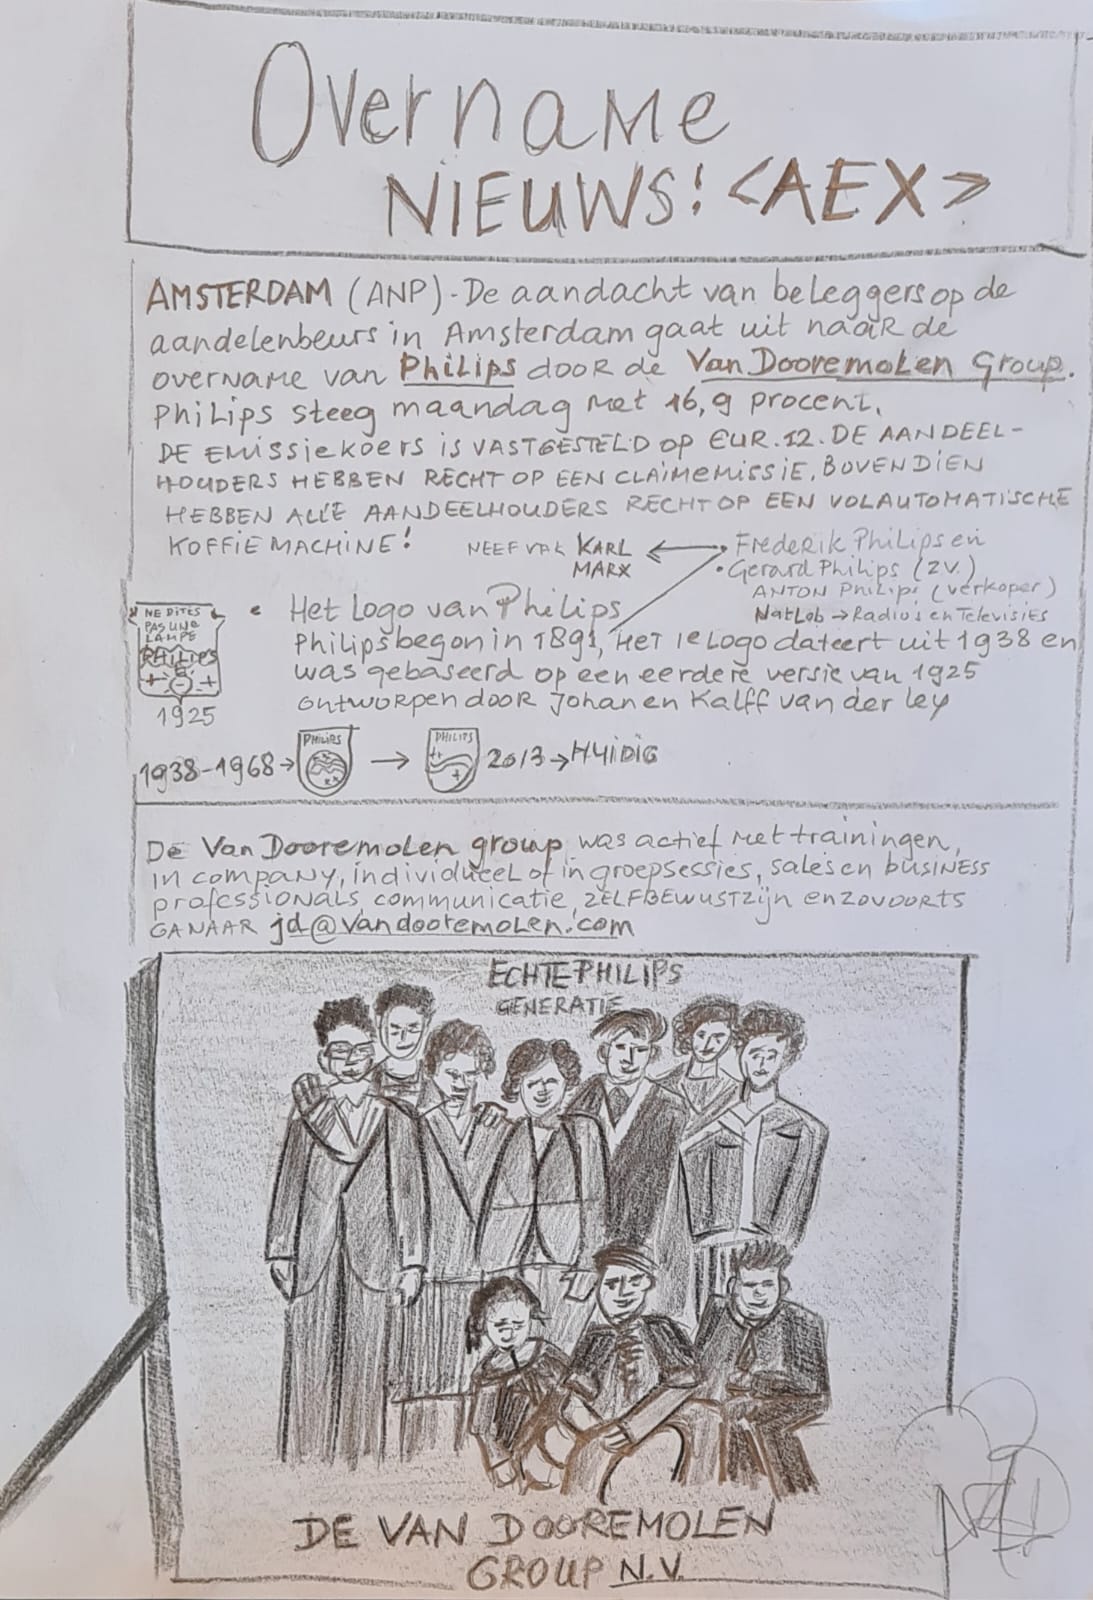 Overname
NIEUWS! <AEX>
AMSTERDAM (ANP)-De aandacht van beleggers op de
aandelenbeurs in Amsterdam gaat uit naar de
overname van Philips door de Van Dooremolen Group.
Philips steeg maandag met 16,9 procent.
DE EMISSIEKOERS IS VASTGESTELD OP EUR.12. DE AANDEEL-
HOUDERS HEBBEN RECHT OP EEN CLAIMEMISSIE. BOVENDIEN
HEBBEN ALLE AANDEELHOUDERS RECHT OP EEN VOLAUTOMATISCHE
KOFFIEMACHINE!
NEEF VAN KARL
MARX
• Frederik Philips en
• Gerard Philips (zv.)
ANTON Philips (verkoper)
NatLab → Radio's en Televisies
NE DITES
PAS UNE
LAMPE
PHILIPS
1925
• Het Logo van Philips
Philips begon in 1891, HET 1e Logo dateert uit 1938 en
was gebaseerd op een eerdere versie van 1925
ontworpen door Johan en Kalff van der Ley
1938-1968→ PHILIPS → PHILIPS 2013→HUIDIG
De Van Dooremolen group was actief met trainingen,
in company, individueel of in groepsessies, sales en business
professionals, communicatie, ZELFBEWUSTZIJN enzovoorts
GA NAAR jd@vandooremolen.com
ECHTE PHILIPS
GENERATIE
DE VAN DOOREMOLEN
GROUP N.V.